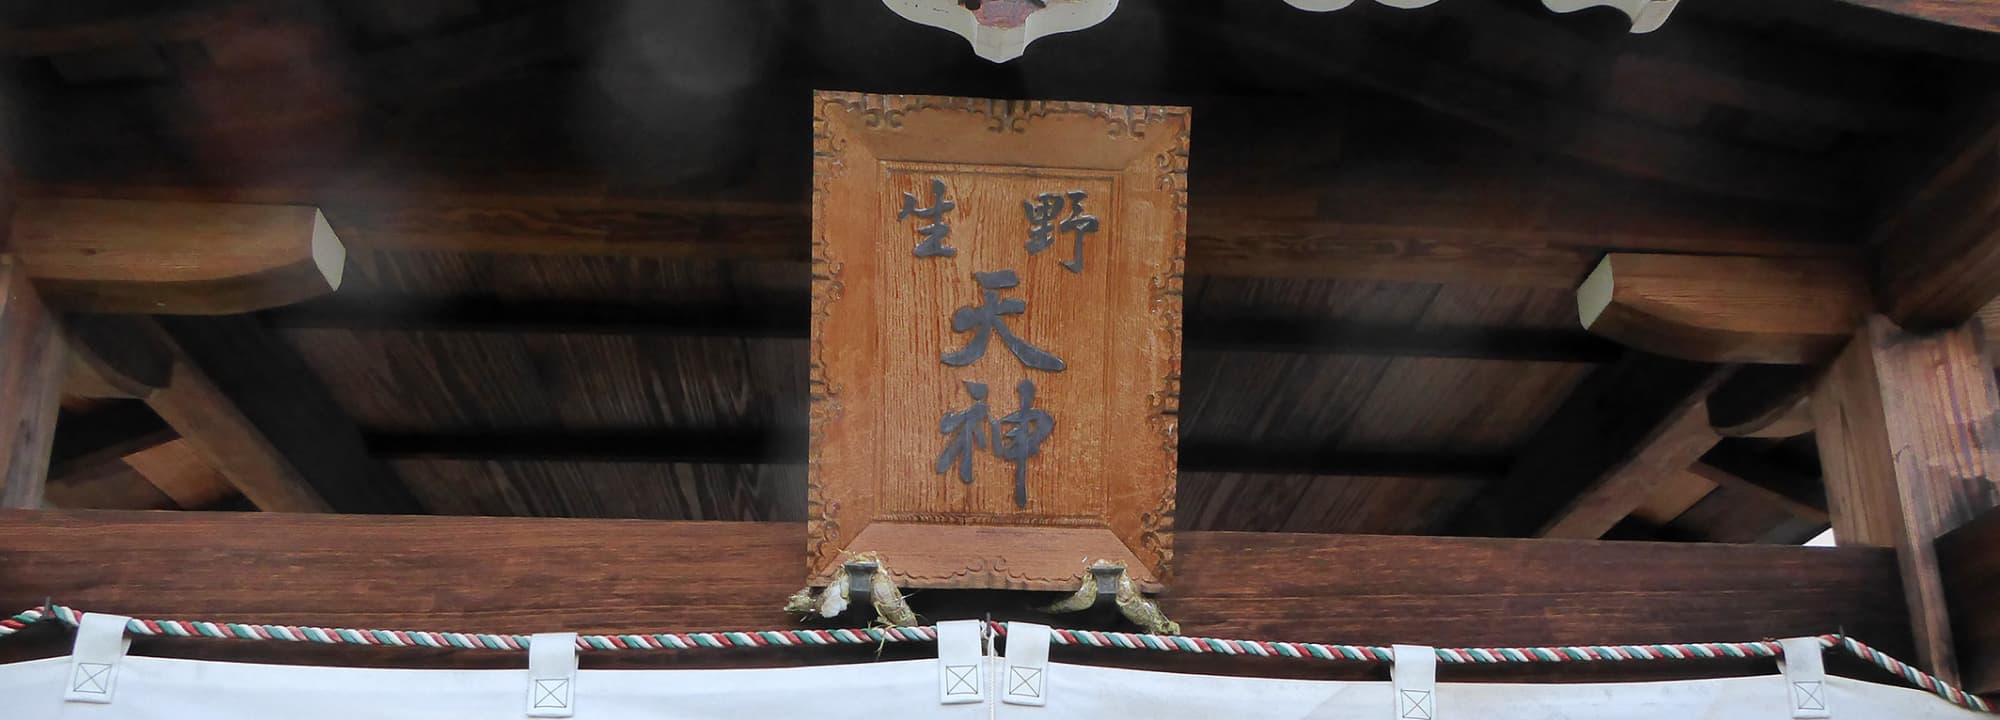 野生
天神